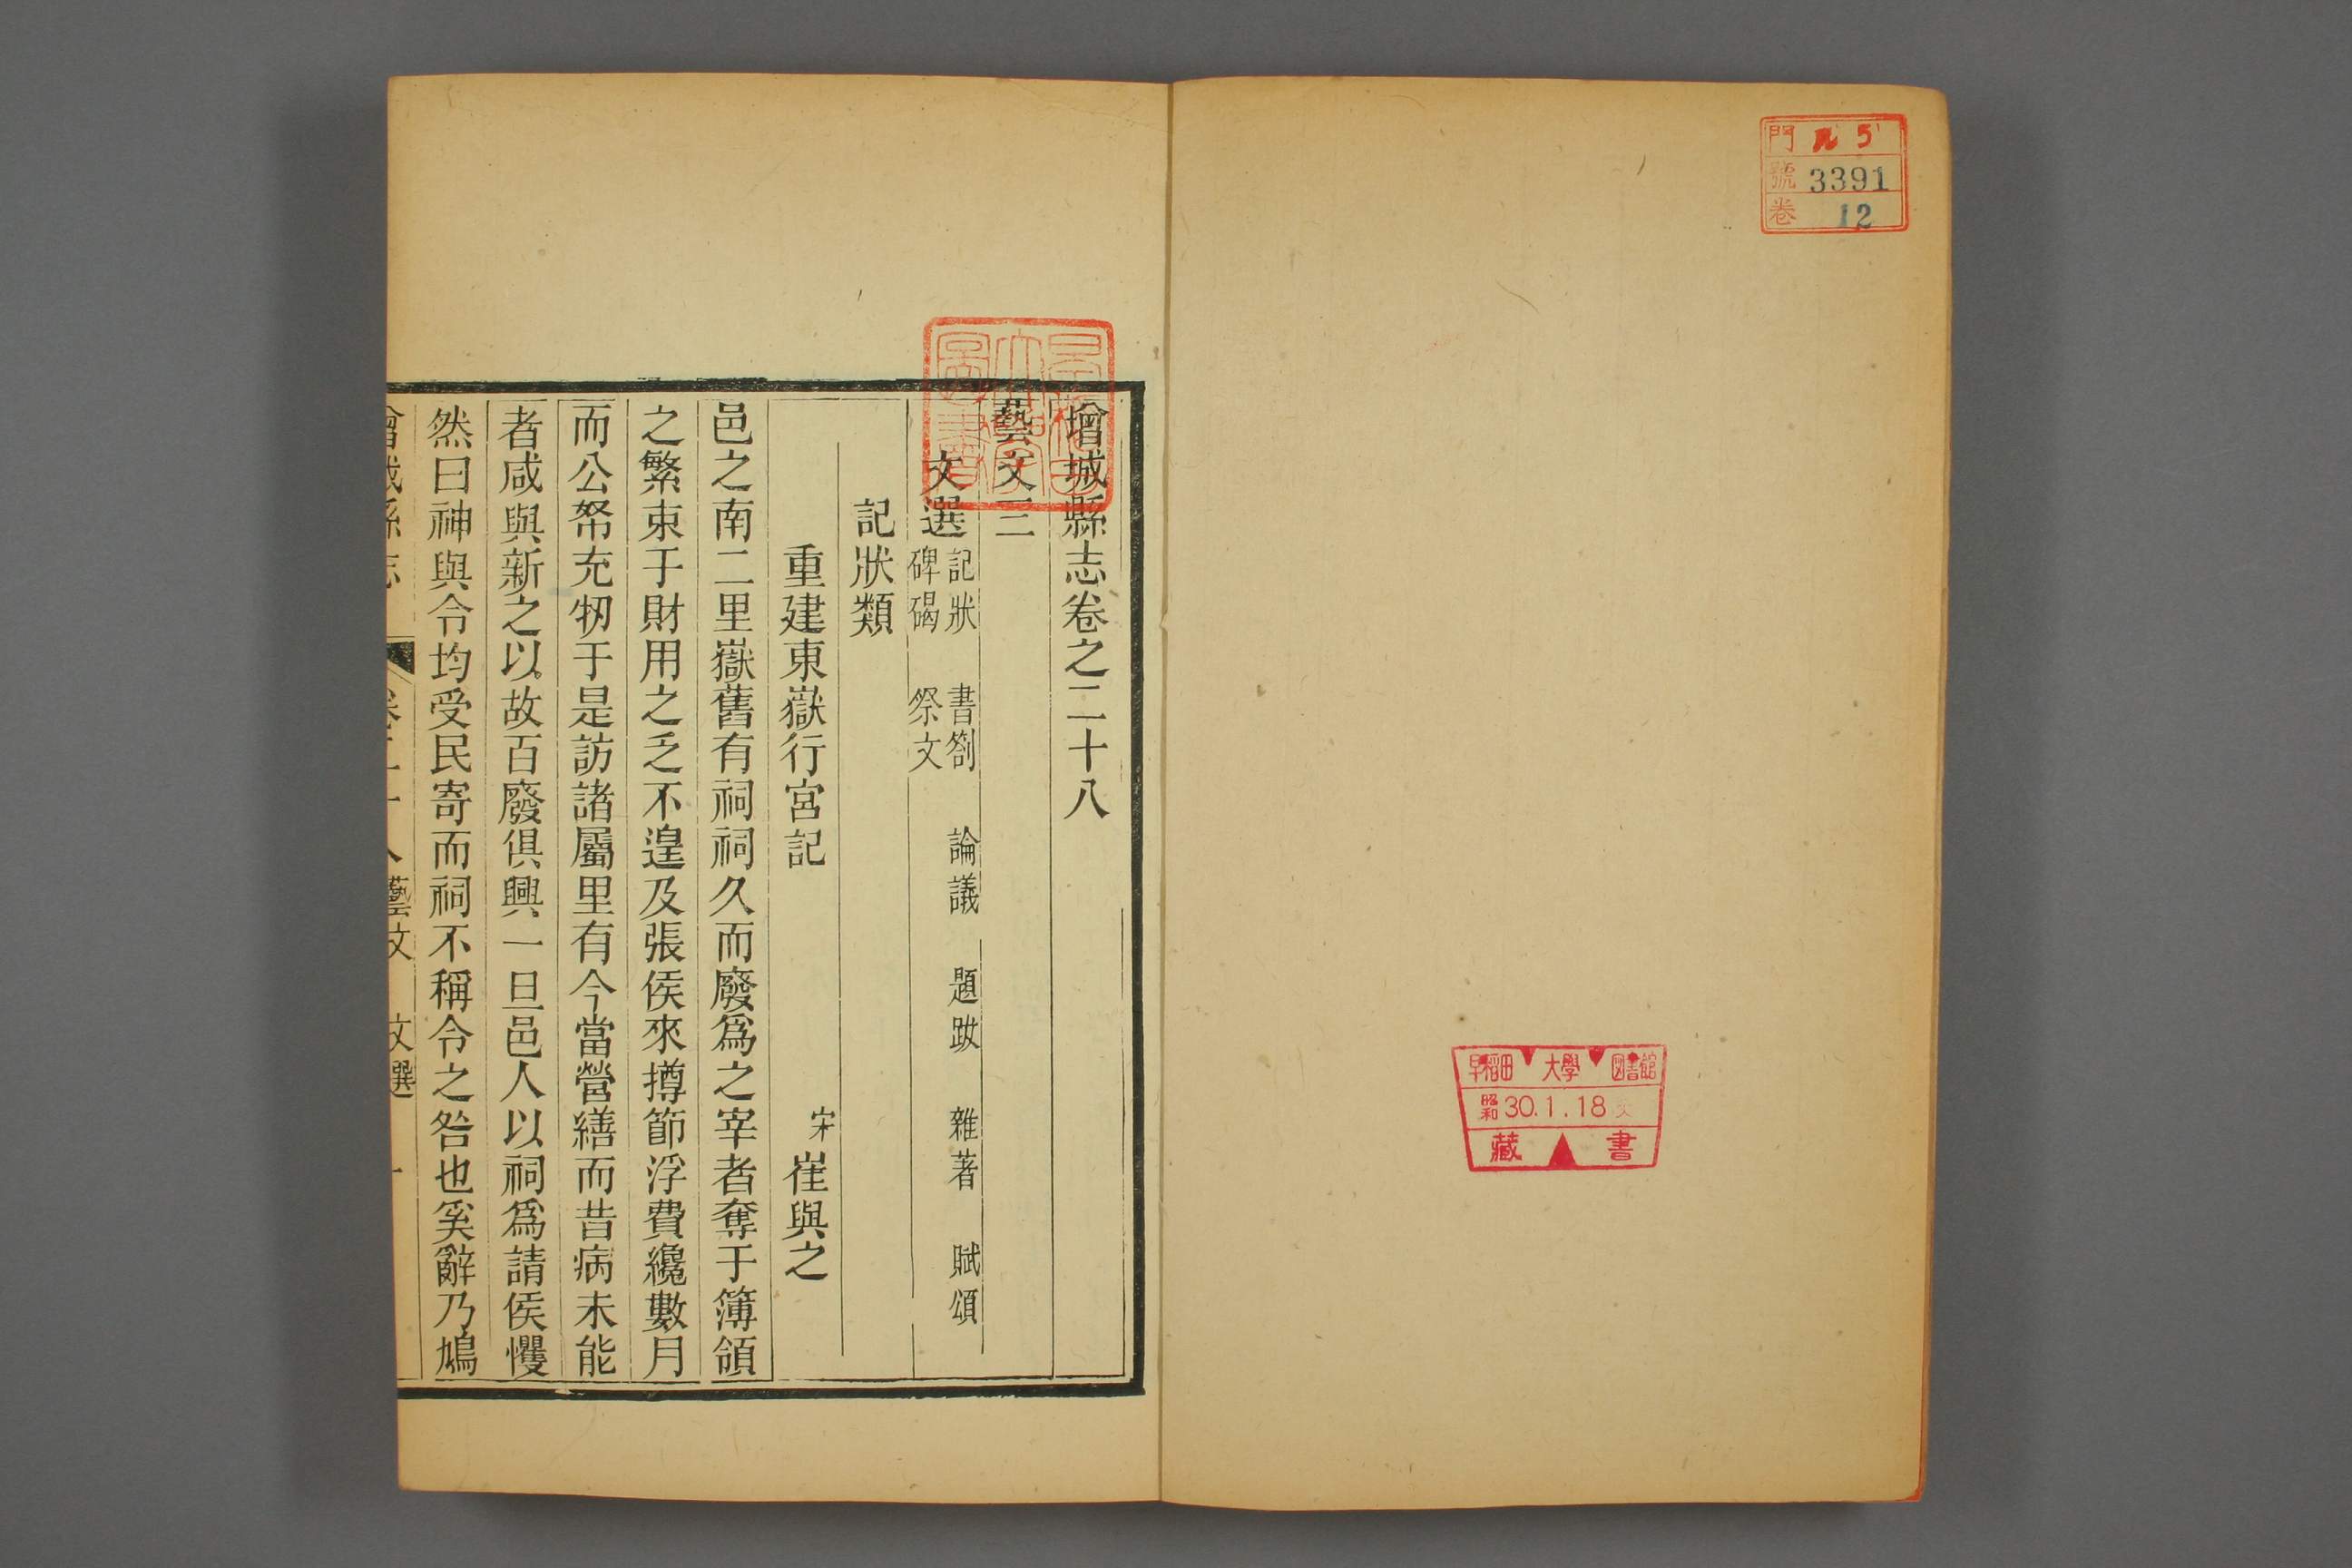 門 ル 5
號 3391
卷 12
早稻田 大學 圖書館
昭和 30.1.18
藏 書
增城縣志卷之二十八
藝文三
文選 記狀 書劄 論議 題跋 雜著 賦頌
碑碣 祭文
記狀類
重建東嶽行宮記 宋 崔與之
邑之南二里嶽舊有祠祠久而廢爲之宰者奪于簿領
之繁束于財用之乏不遑及張侯來撙節浮費纔數月
而公帑充牣于是訪諸屬里有今當營繕而昔病未能
者咸與新之以故百廢俱興一旦邑人以祠爲請侯戄
然曰神與令均受民寄而祠不稱令之咎也奚辭乃鳩
藝文 文選